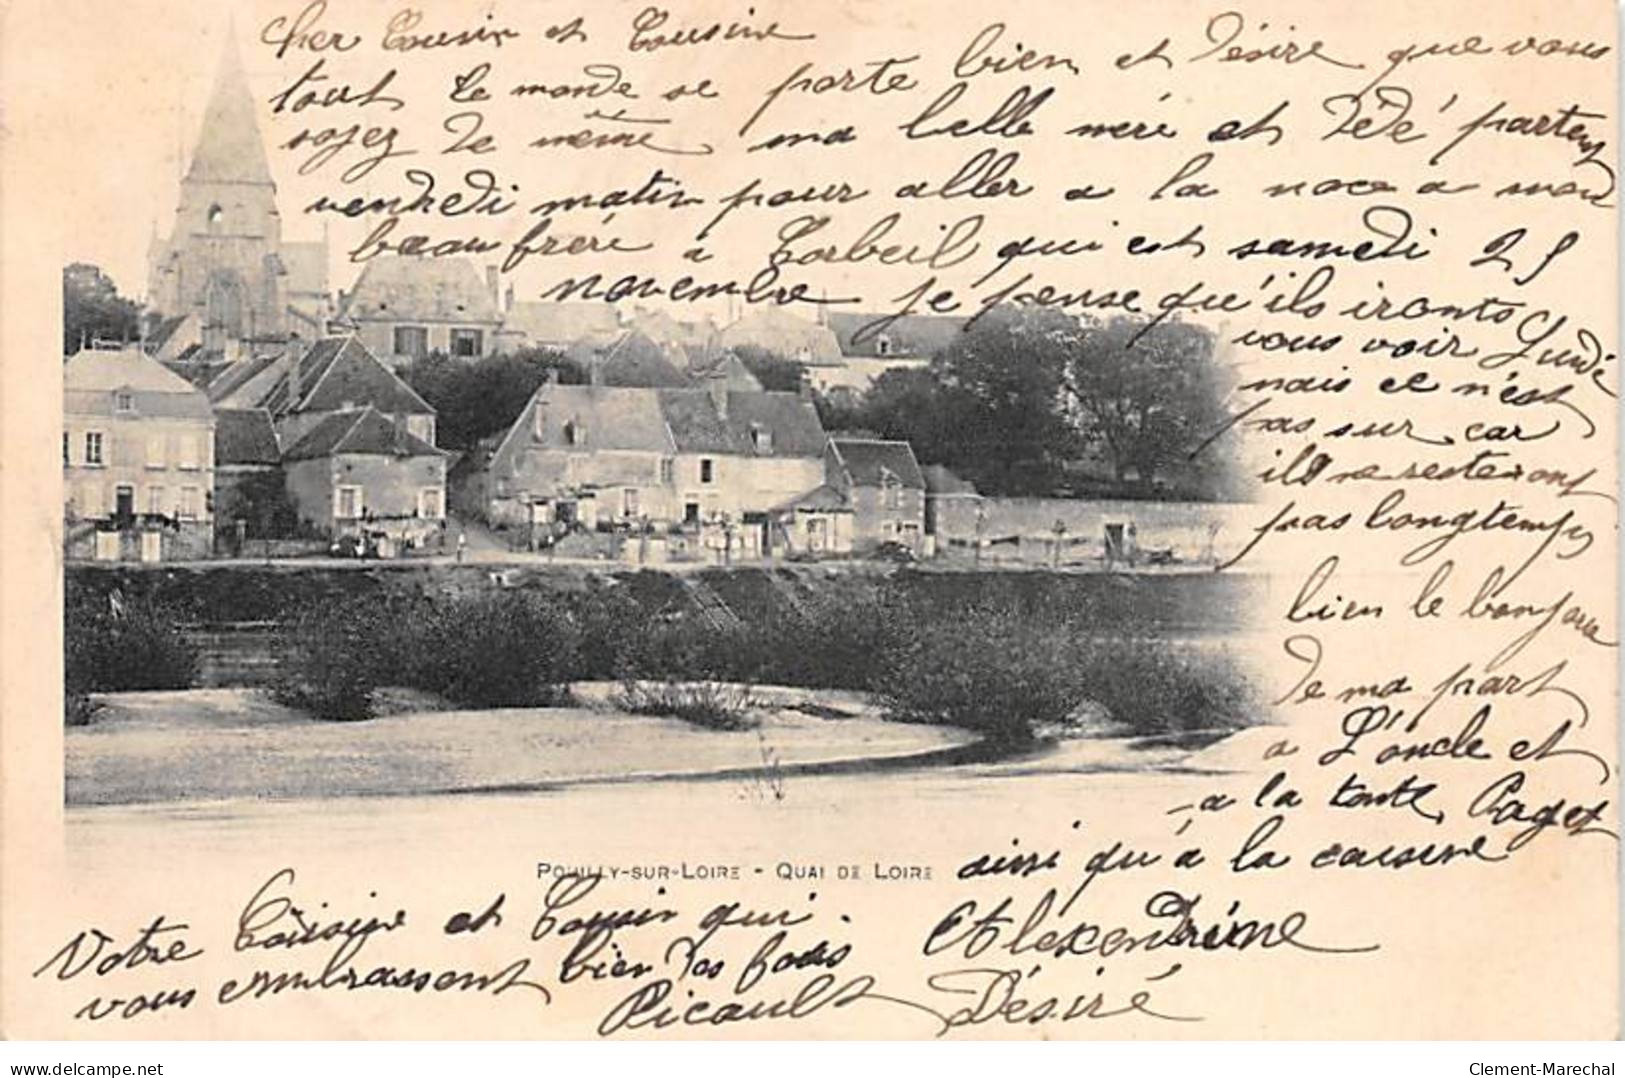 Cher Cousin et Cousine
tout le monde se porte bien et désire que vous
soyez de même, ma belle mère et Dédé partent
vendredi matin pour aller a la noce a mon
beau frère a Corbeil qui est samedi 25
novembre je pense qu'ils ironts
vous voir Lundi
mais ce n'est
pas sur, car
ils ne resteront
pas longtemps
bien le bonjour
de ma part
a L'oncle et
a la tante, Paget
ainsi qu'à la cousine
POUILLY-SUR-LOIRE - QUAI DE LOIRE
Votre Cousine et Cousin qui
vous embrassent bien des fois
Alexendrine
Picault Désiré
delcampe.net
Clement-Marechal